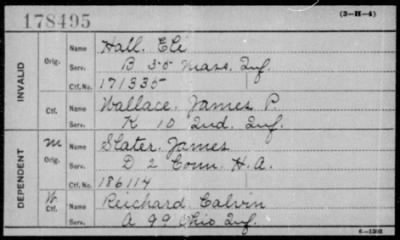 178495
(3-H-4)
INVALID
Orig. Name Hall, Eli
Serv. B 35 Mass. Inf.
Ctf. No. 171335
Ctf. Name Wallace, James P.
Serv. K 10 Ind. Inf.
DEPENDENT
M Orig. Name Slater, James
Serv. D 2 Conn. H.A.
Ctf. No. 186114
W. Ctf. Name Reichard Calvin
Serv. A 99 Ohio Inf.